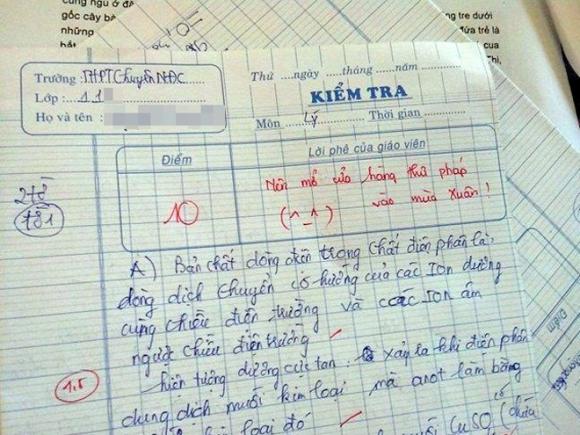 cũng ngu ở đ
gốc cây bà
những
ng tre dưới
đứa trẻ là
cua
Trường : THPT Chuyên NĐC
Lớp : 11
Họ và tên :
Thứ ....ngày ....tháng ....năm
KIỂM TRA
Môn Lý Thời gian
Điểm
Lời phê của giáo viên
10
Nên mở cửa hàng thư pháp
(^_^) vào mùa xuân !
278
781
A) Bản chất dòng điện trong chất điện phân là:
dòng dịch chuyển có hướng của các Ion dương
cùng chiều điện trường và các Ion âm
ngược chiều điện trường
1.5
hiện tượng dương cực tan : xảy ra khi điện phân
dung dịch muối kim loại mà anot làm bằng
kim loại đó
muối CuSO4 (chứa